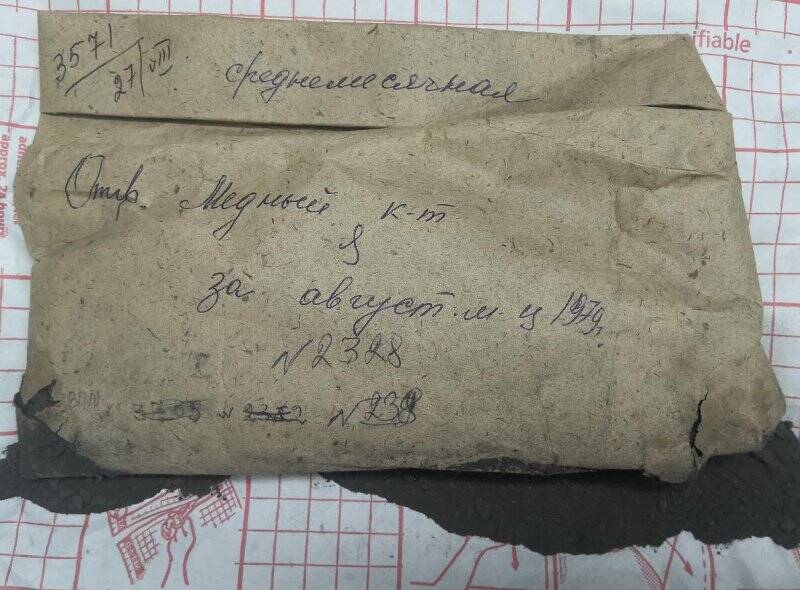 3571
27/VIII
среднемесячная
Отпр. Медный к-т
за август. м-ц 1979г.
N2328
ВПМ
N 238
ifiable
approx. 24 hours